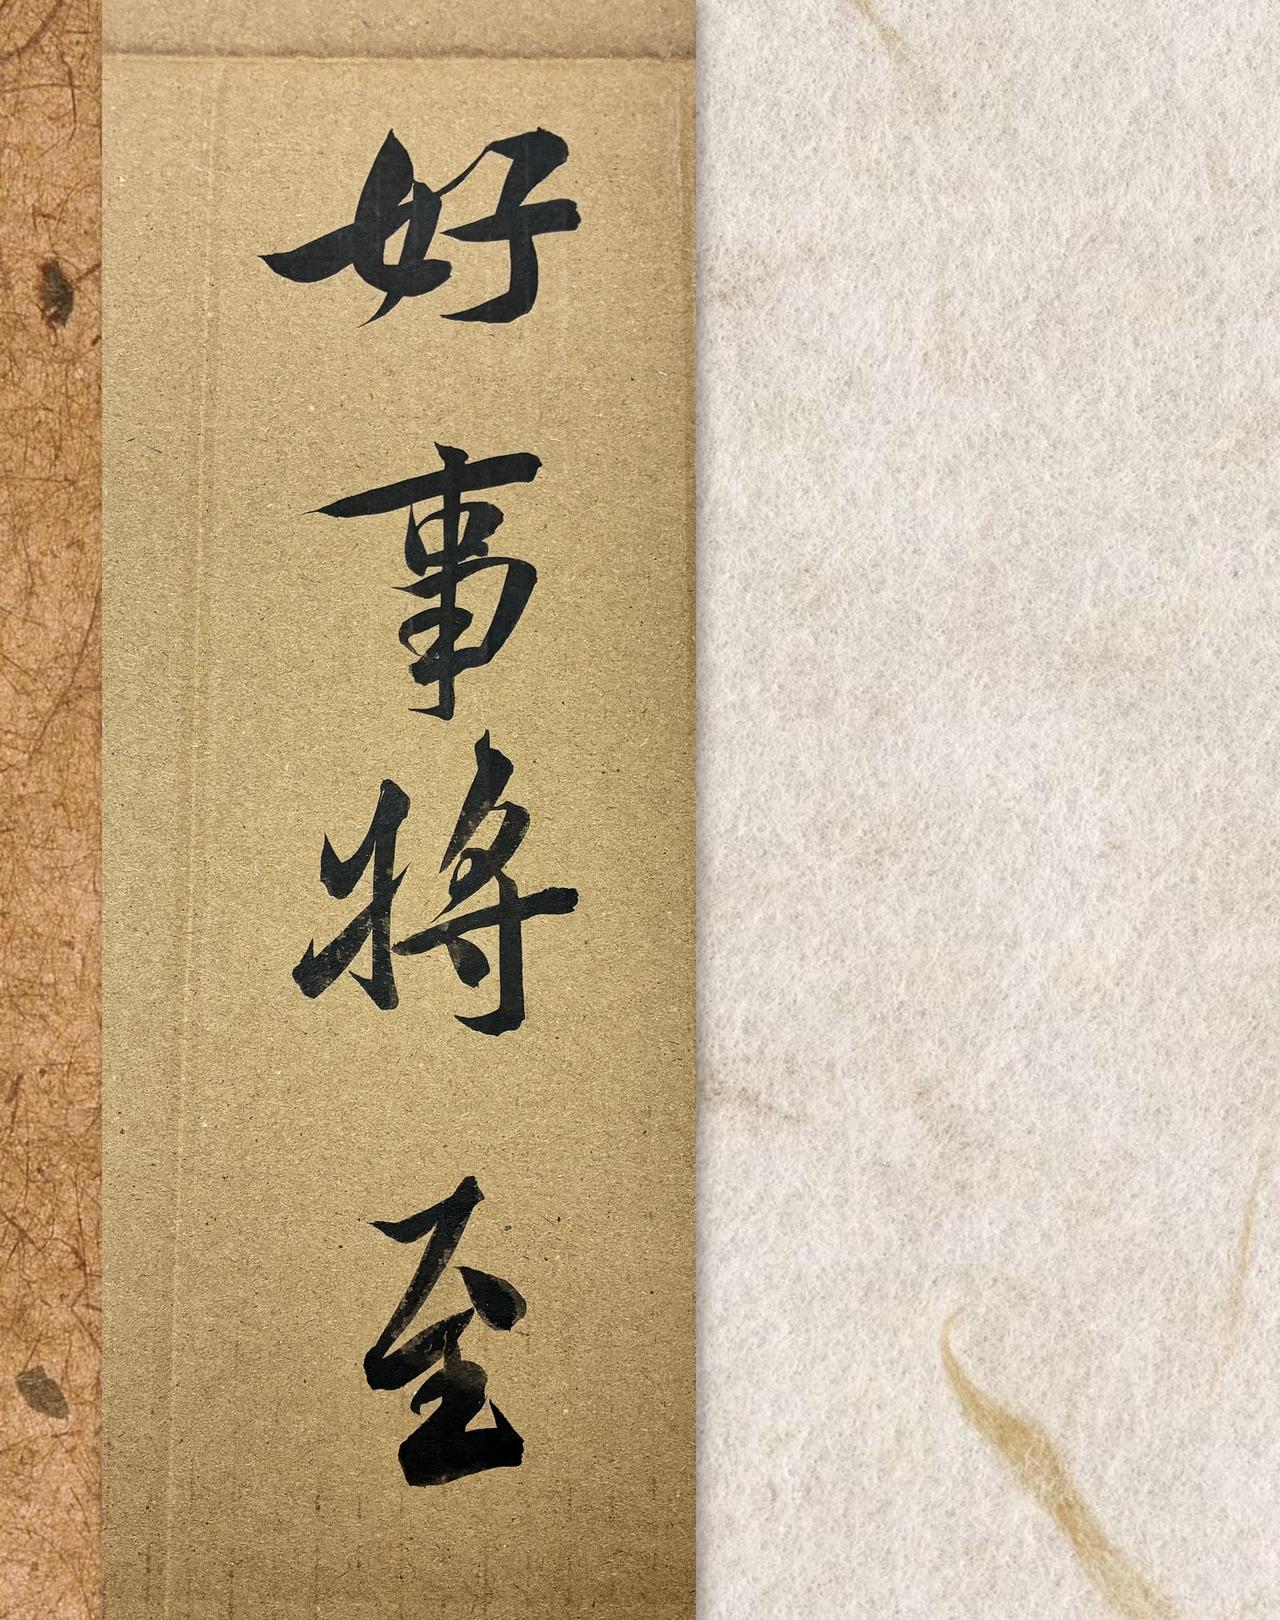 好事将至